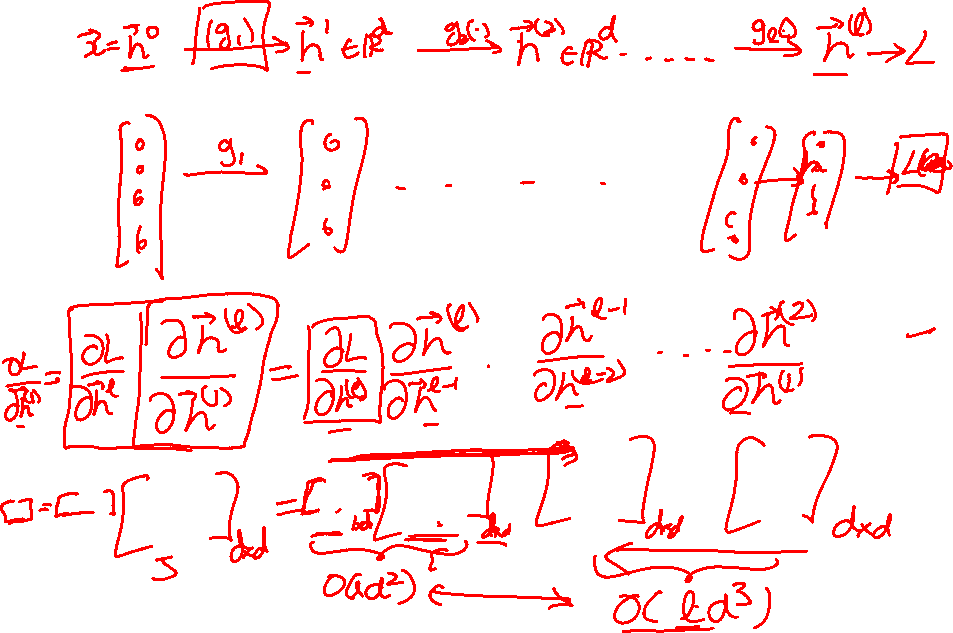 x⃗ = h⃗⁰ →(g₁) h⃗¹ ∈ ℝᵈ →g₂(·) h⃗⁽²⁾ ∈ ℝᵈ ..... → h⃗⁽ˡ⁾ → L
[0 0 6 6] →g₁ [0 0 6] - - - -
∂L/∂h⃗⁽¹⁾ = ∂L/∂h⃗ˡ ∂h⃗⁽ˡ⁾/∂h⃗⁽¹⁾ = ∂L/∂h⃗⁽ˡ⁾ ∂h⃗⁽ˡ⁾/∂h⃗ˡ⁻¹ · ∂h⃗ˡ⁻¹/∂h⃗⁽ˡ⁻²⁾ ..... ∂h⃗⁽²⁾/∂h⃗⁽¹⁾
[ ] = [ ] [ ]dxd = [ ] [ ]dxd [ ]dxd [ ]dxd
J
O(ld²) ↔ O(ld³)